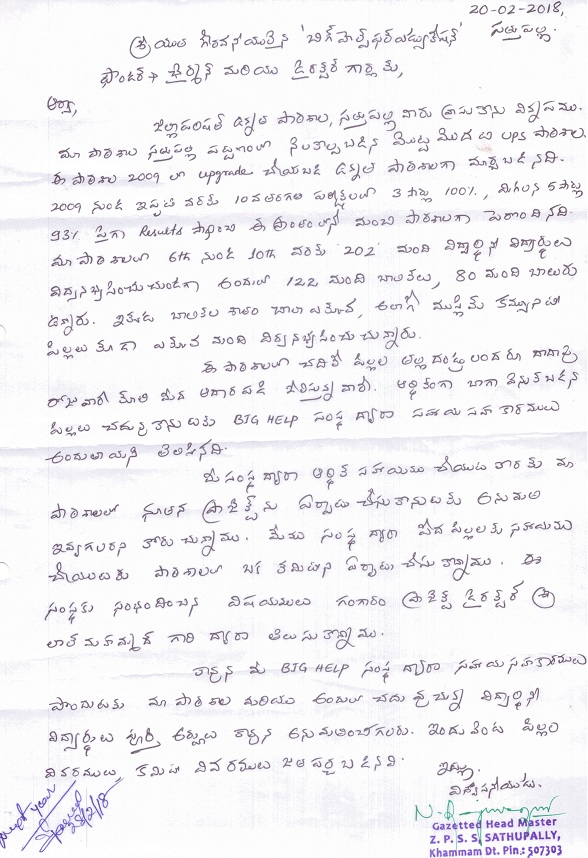 20-02-2018,
సత్తుపల్లి.
శ్రీయుత గౌరవనీయులైన 'బిగ్ హెల్ప్ ఫర్ ఎడ్యుకేషన్'
ఫౌండర్ → ఛైర్మన్ మరియు డైరెక్టర్ గార్లకు,
ఆర్యా,
జిల్లాపరిషత్ ఉన్నత పాఠశాల, సత్తుపల్లి వారు వ్రాసుకొను విన్నపము.
మా పాఠశాల సత్తుపల్లి పట్టణంలో నెలకొల్పబడిన మొట్ట మొదటి UPS పాఠశాల.
ఈ పాఠశాల 2009 లో upgrade చేయబడి ఉన్నత పాఠశాలగా మార్చబడినది.
2009 నుండి ఇప్పటి వరకు 10వ తరగతి ఫలితాలలో 3 సార్లు 100%, మిగిలిన 6 సార్లు
93% పైగా Results సాధించి ఈ ప్రాంతంలోనే మంచి పాఠశాలగా పేరొందినది.
మా పాఠశాలలో 6th నుండి 10th వరకు '202' మంది విద్యార్థినీ విద్యార్థులు
విద్యనభ్యసించుచుండగా అందులో 122 మంది బాలికలు, 80 మంది బాలురు
ఉన్నారు. ఇక్కడ బాలికల శాతం చాలా ఎక్కువ, అలాగే ముస్లిమ్ కమ్యూనిటీ
పిల్లలు కూడా ఎక్కువ మంది విద్యనభ్యసించుచున్నారు.
ఈ పాఠశాలలో చదివే పిల్లల తల్లిదండ్రులందరూ దాదాపు
రోజువారీ కూలి మీద ఆధారపడి జీవిస్తున్న వారే. ఆర్థికంగా బాగా వెనుకబడిన
పిల్లలు చదువుకొనుటకు BIG HELP సంస్థ ద్వారా సహాయ సహకారములు
అందుతాయని తెలిసినది.
మీ సంస్థ ద్వారా ఆర్థిక సహాయము చేయుట కొరకు మా
పాఠశాలలో నూతన ప్రాజెక్ట్ ను ఏర్పాటు చేసుకొనుటకు అనుమతి
ఇవ్వగలరని కోరుచున్నాము. మేము సంస్థ ద్వారా పేద పిల్లలకు సహాయము
చేయుటకు పాఠశాలలో ఒక కమిటీని ఏర్పాటు చేసుకొన్నాము. ఈ
సంస్థకు సంభందించిన విషయములు గంగారం ప్రాజెక్ట్ డైరెక్టర్ శ్రీ
లాల్ మహమ్మద్ గారి ద్వారా తెలుసుకొన్నాము.
కావున మీ BIG HELP సంస్థ ద్వారా సహాయసహకారములు
పొందుటకు మా పాఠశాల మరియు అందులో చదువుచున్న విద్యార్థినీ
విద్యార్థులు పూర్తి అర్హులు కావున అనుమతించగలరు. ఇందువెంట పిల్లల
వివరములు, కమిటీ వివరములు జతపర్చబడినవి.
ఇట్లు,
విశ్వసనీయుడు.
28/2/18
Gazetted Head Master
Z. P. S. S, SATHUPALLY,
Khammam Dt. Pin.: 507303